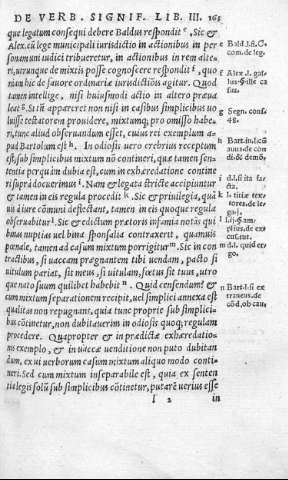 DE VERB. SIGNIF. LIB. III. 163
que legatum consequi debere Baldus respondit e. Sic &
Alex. cũ lege municipali iurisdictio in actionibus in per
sonam uni iudici tribueretur, in actionibus in rem alte-
ri, utrunque de mixtis posse cognoscere respondit f, quo
niam hic de fauore ordinariæ iurisdictiõis agitur. Quod
tamen intellige, nisi huiusmodi actio in altero præua
leat g. Sic si appareret non nisi in casibus simplicibus uo
luisse testatorem prouidere, mixtumq; pro omisso habe-
ri, tunc aliud obseruandum esset, cuius rei exemplum a-
pud Bartolum est h. In odiosis uero crebrius receptum
est, sub simplicibus mixtum nõ contineri, quæ tamen sen-
tentia perquam dubia est, cum in exhæredatione contine
ri suprà docuerimus i. Nam & legata strictè accipiuntur
& tamen in eis regula procedit k. Sic & priuilegia, quã
uis à iure cõmuni deflectant, tamen in eis quoque regula
obseruabitur l. Sic & edictum prætoris infamia notãs qui
binas nuptias uel bina sponsalia contraxerit, quamuis
pœnale, tamen ad casum mixtum porrigitur m. Sic in con
tractibus, si uaccam prægnantem tibi uendam, pacto si
uitulum pariat, sit meus, si uitulam, fœtus sit tuus, utro
que nato suum quilibet habebit n. Quid censendum? &
cum mixtum separationem recipit, uel simplici annexa est
qualitas non repugnans, quia tunc propriè sub simplici-
bus cõtinetur, non dubitauerim in odiosis quoq; regulam
procedere. Quapropter & in prædictæ exhæredatio-
nis exemplo, & in uaccæ uenditione non puto dubitan
dum, ex ui uerborum casum mixtum aliquo modo conti-
neri. Sed cum mixtum inseparabile est, quia ex senten
tia legis solũ sub simplicibus cõtinetur, putarẽ uerius esse
l 2 in
e Bald. l. si. C.
com. de leg.
f Alex. l. gal-
lus §. iste ca
sus.
g Segn. cons.
49.
h Bart. in l. cũ
auus. de con
di. & demõ.
i d. l. si ita fa-
cta.
k l. si titiæ tex-
tores. de le-
ga. j.
l l. j. §. am-
plius. de ex
cusa. tut.
m d. l. quid er-
go.
n Bart. l. si ex
traneus. de
cõd. ob cau.